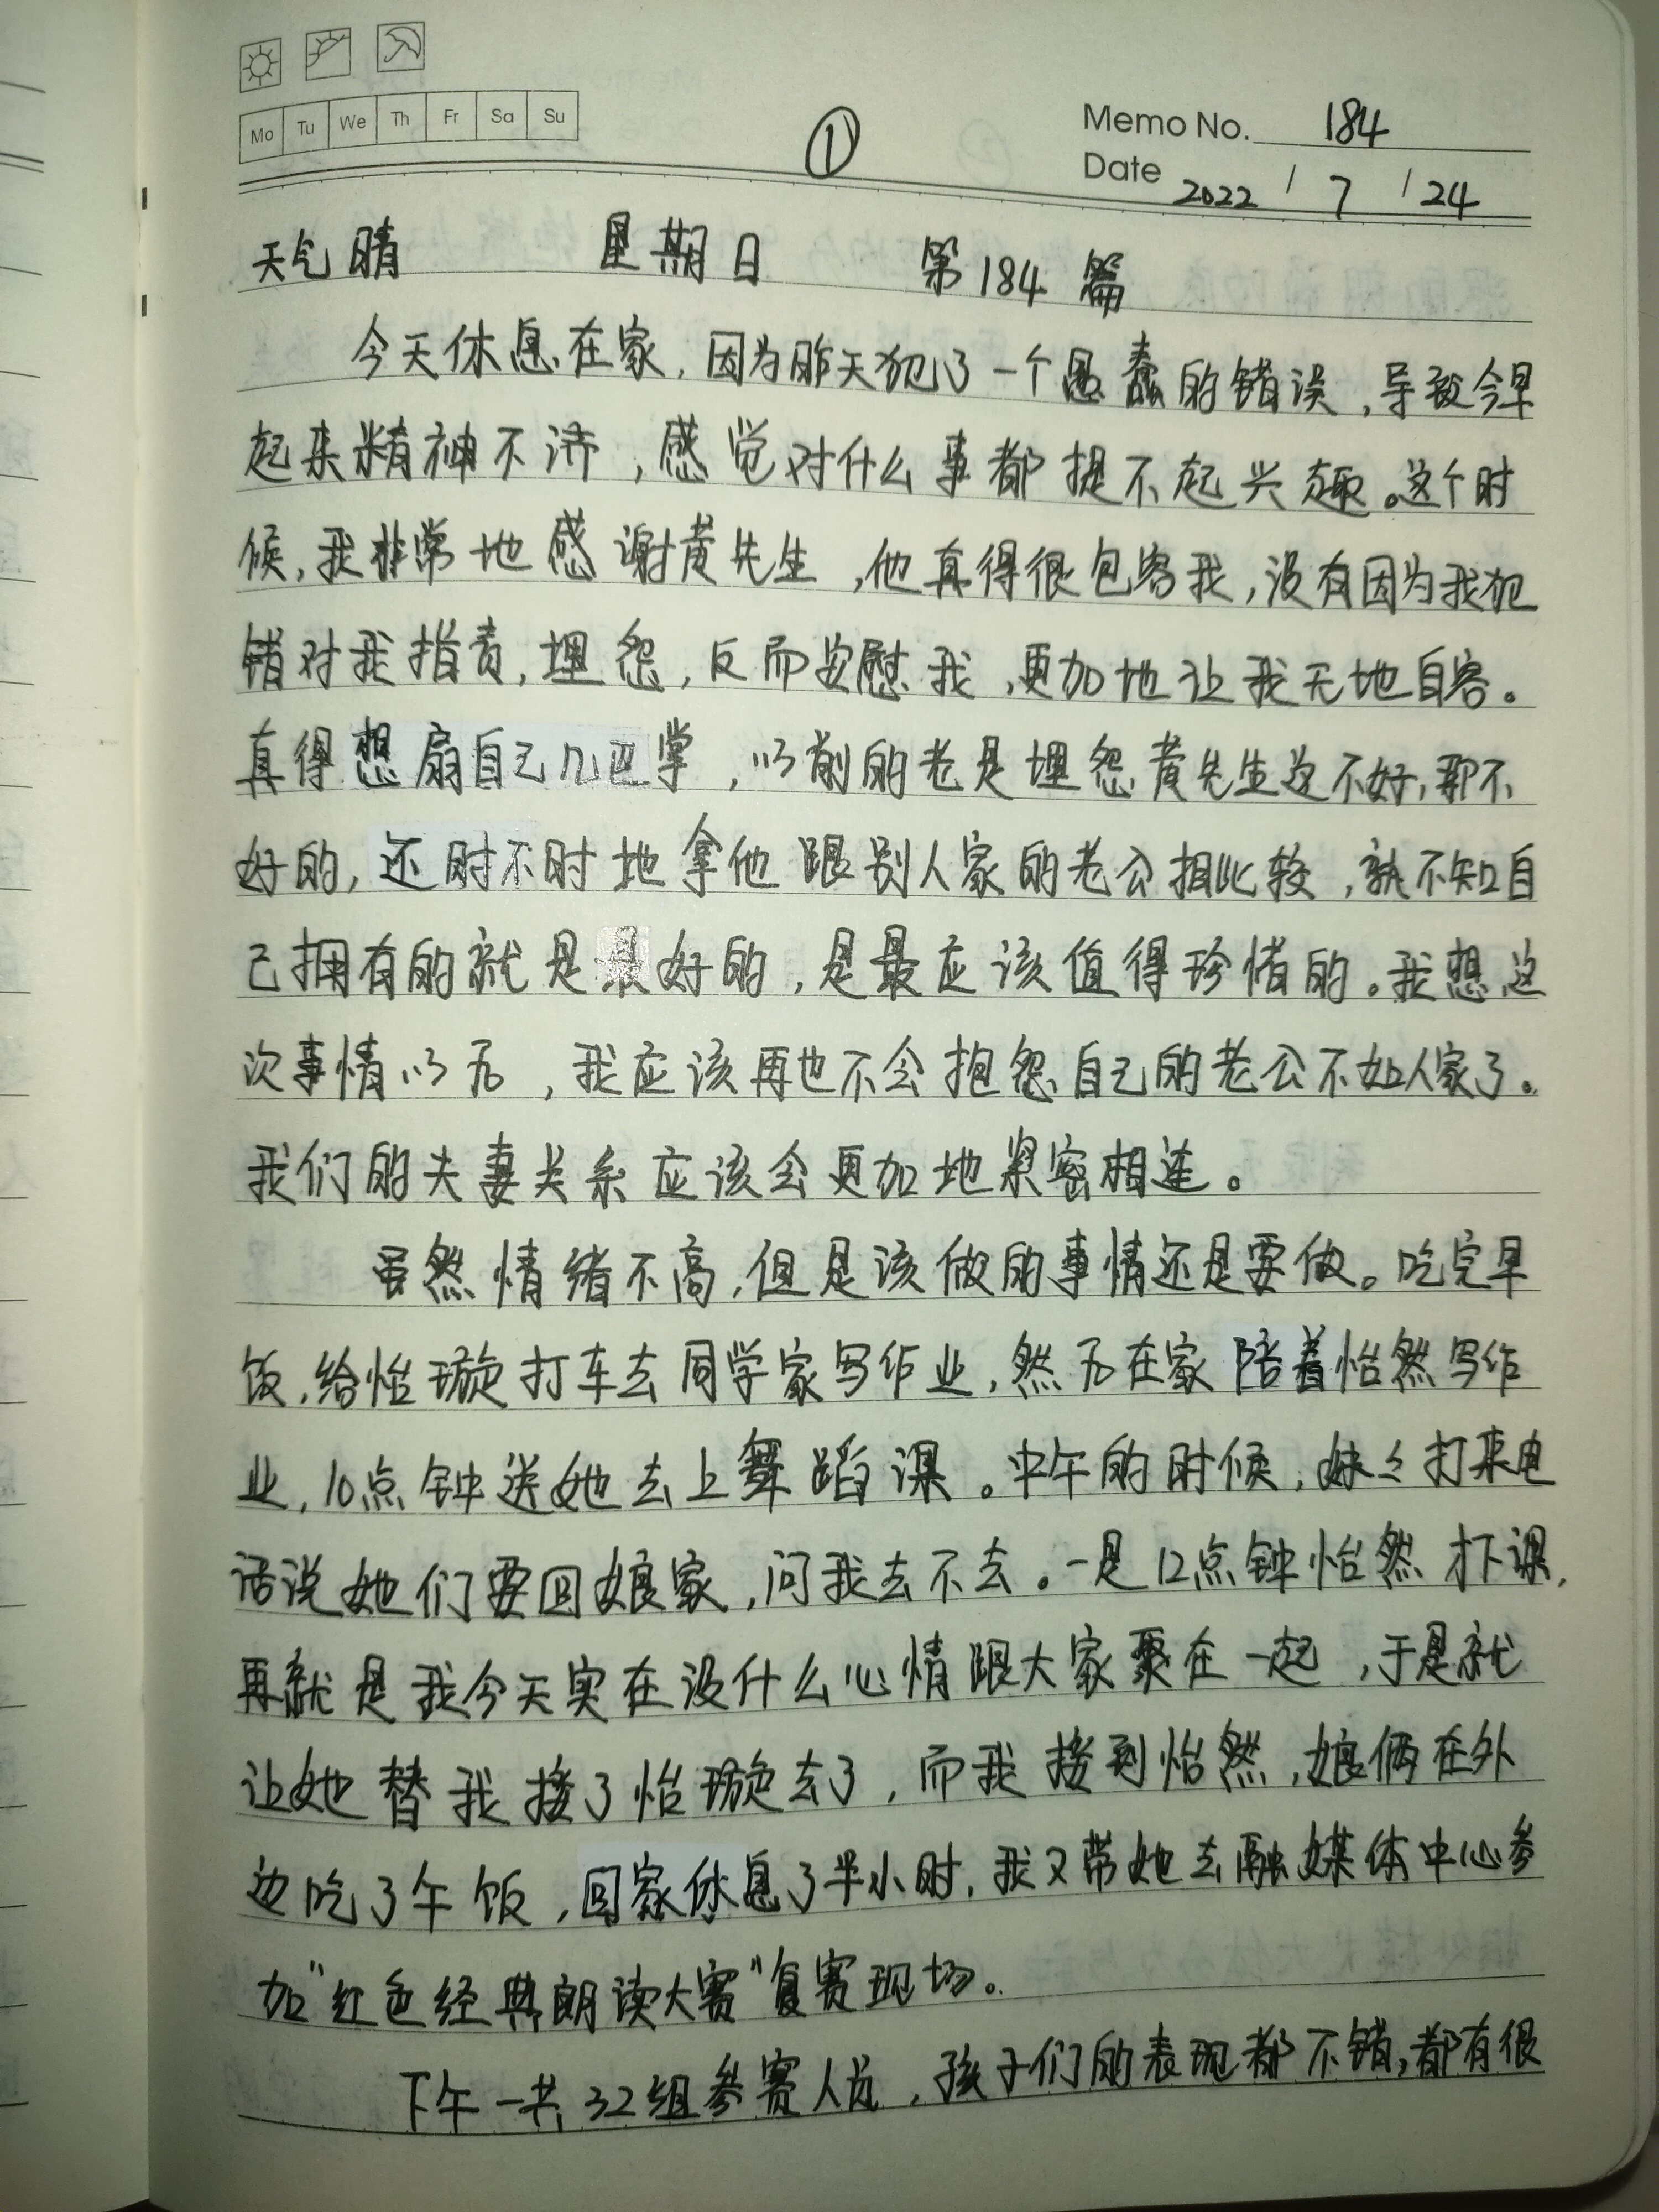 Mo Tu We Th Fr Sa Su
①
Memo No. 184
Date 2022 / 7 / 24
天气晴 星期日 第184篇
今天休息在家，因为昨天犯了一个愚蠢的错误，导致今早
起来精神不济，感觉对什么事都提不起兴趣。这个时
候，我非常地感谢黄先生，他真得很包容我，没有因为我犯
错对我指责，埋怨，反而安慰我，更加地让我无地自容。
真得想扇自己几巴掌，以前的老是埋怨黄先生这不好，那不
好的，还时不时地拿他跟别人家的老公相比较，孰不知自
己拥有的就是最好的，是最应该值得珍惜的。我想这
次事情以后，我应该再也不会抱怨自己的老公不如人家了。
我们的夫妻关系应该会更加地紧密相连。
虽然情绪不高，但是该做的事情还是要做。吃完早
饭，给怡璇打车去同学家写作业，然后在家陪着怡然写作
业，10点钟送她去上舞蹈课。中午的时候，妹々打来电
话说她们要回娘家，问我去不去。一是12点钟怡然才下课，
再就是我今天实在没什么心情跟大家聚在一起，于是就
让她替我接了怡璇去了，而我接到怡然，娘俩在外
边吃了午饭，回家休息了半小时，我又带她去融媒体中心参
加"红色经典朗读大赛"复赛现场。
下午一共32组参赛人员，孩子们的表现都不错，都有很